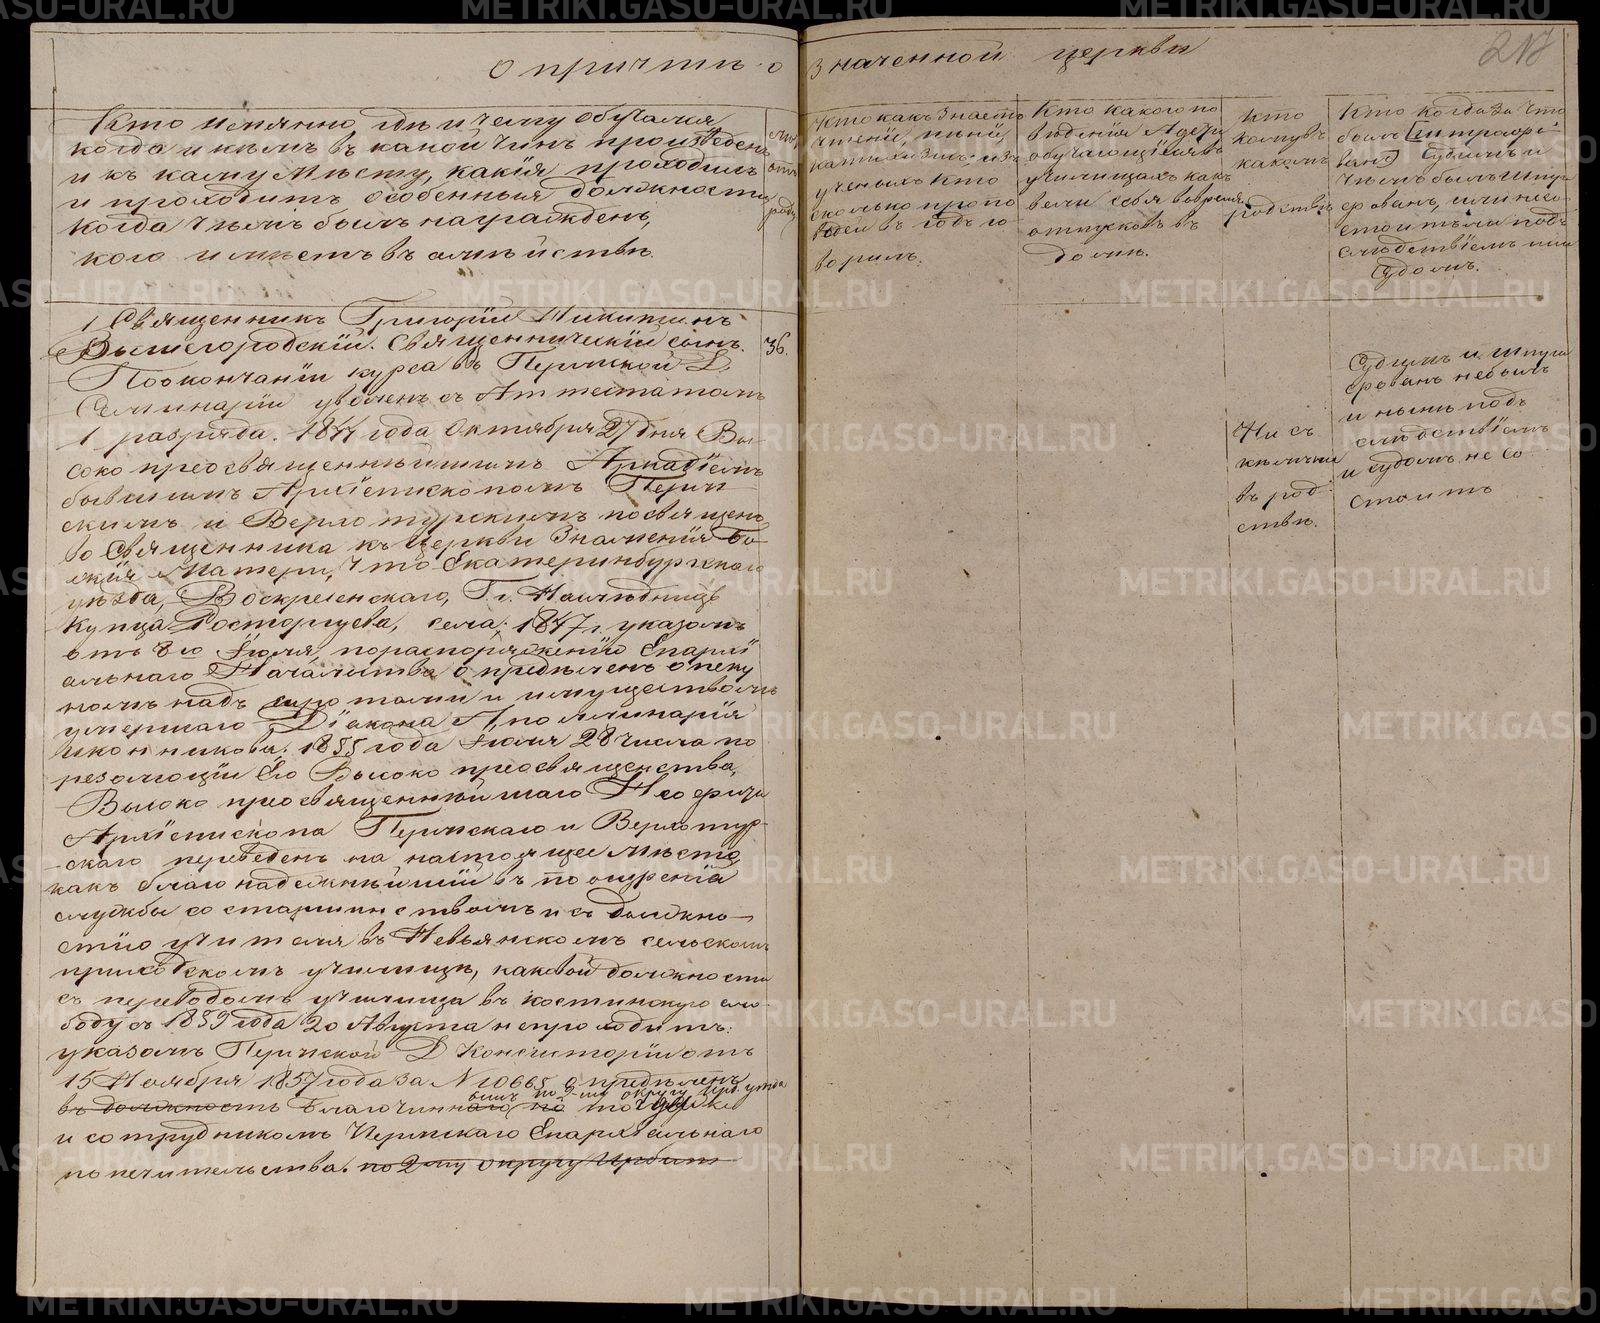 О причтѣ о
значенной церкви
217
Кто имянно, гдѣ и чему обучался
когда и кѣмъ въ какой чинъ произведенъ
и къ кому мѣсту, какія проходилъ
и проходитъ особенныя должности,
когда чѣмъ былъ награжденъ,
кого имѣетъ въ семѣйствѣ.
отъ
роду
Кто какъ знаетъ
чтеніе, пѣніе,
катихизисъ и
ученыхъ кто
сколько пропо
ведей въ годъ го
ворилъ.
Кто какого по
ведения и дѣти
обучающіеся въ
училищахъ какъ
вели себя вовремя
отпусковъ въ
домы.
Кто
кому въ
какомъ
родствѣ
Кто когда за что
былъ штрафо-
ванъ Судимъ и
чѣмъ былъ штра
фованъ, или не со
стоитъ ли подъ
слѣдствіемъ или
Судомъ.
1 Священникъ Григорій Никитинъ
Вышегородскій. Священническій сынъ.
36.
По окончаніи курса въ Пермской Д.
Семинаріи уволенъ съ Аттестатомъ
1 разряда. 1844 года Октября 27 дня Вы-
сокопреосвященнѣйшимъ Аркадіемъ
бывшимъ Архіепископомъ Перм
скимъ и Верхотурскимъ посвященъ
во Священника къ церкви Знаменія Бо
жія Матери, что Екатеринбургскаго
уѣзда, Воскресенскаго, Гг. Наслѣдницъ
Купца Расторгуева, села; 1847 г. указомъ
отъ 8го Іюля, по распоряженію Епархі
альнаго Начальства опредѣленъ опеку
номъ надъ сиротами и имуществомъ
умершаго Діакона Апполлинарія
Иконникова. 1855 года Іюля 28 числа по
резолюціи Его Высокопреосвященства,
Высокопреосвященнѣйшаго Неофита
Архіепископа Пермскаго и Верхотур-
скаго переведенъ на настоящее мѣсто,
какъ благонадежнѣйшій въ поощреніе
службы со старшинствомъ и съ должно-
стію учителя въ Невьянскомъ сельскомъ
приходскомъ училищѣ, каковой должности
съ переводомъ училища въ Костинскую сло
боду съ 1859 года 20 Августа непроходитъ:
указомъ Пермской Д Консисторіи отъ
15 Ноября 1857 года за N 10665 опредѣленъ
въ должность Благочиннаго по 2-му округу Ирб. уѣзда
и сотрудникомъ Пермскаго Епархіальнаго
попечительства. по 2му округу Ирбит
Ни съ
кѣмъ
въ род
ствѣ.
Судимъ и штра
фованъ небылъ
и нынѣ подъ
слѣдствіемъ
и судомъ не со
стоитъ